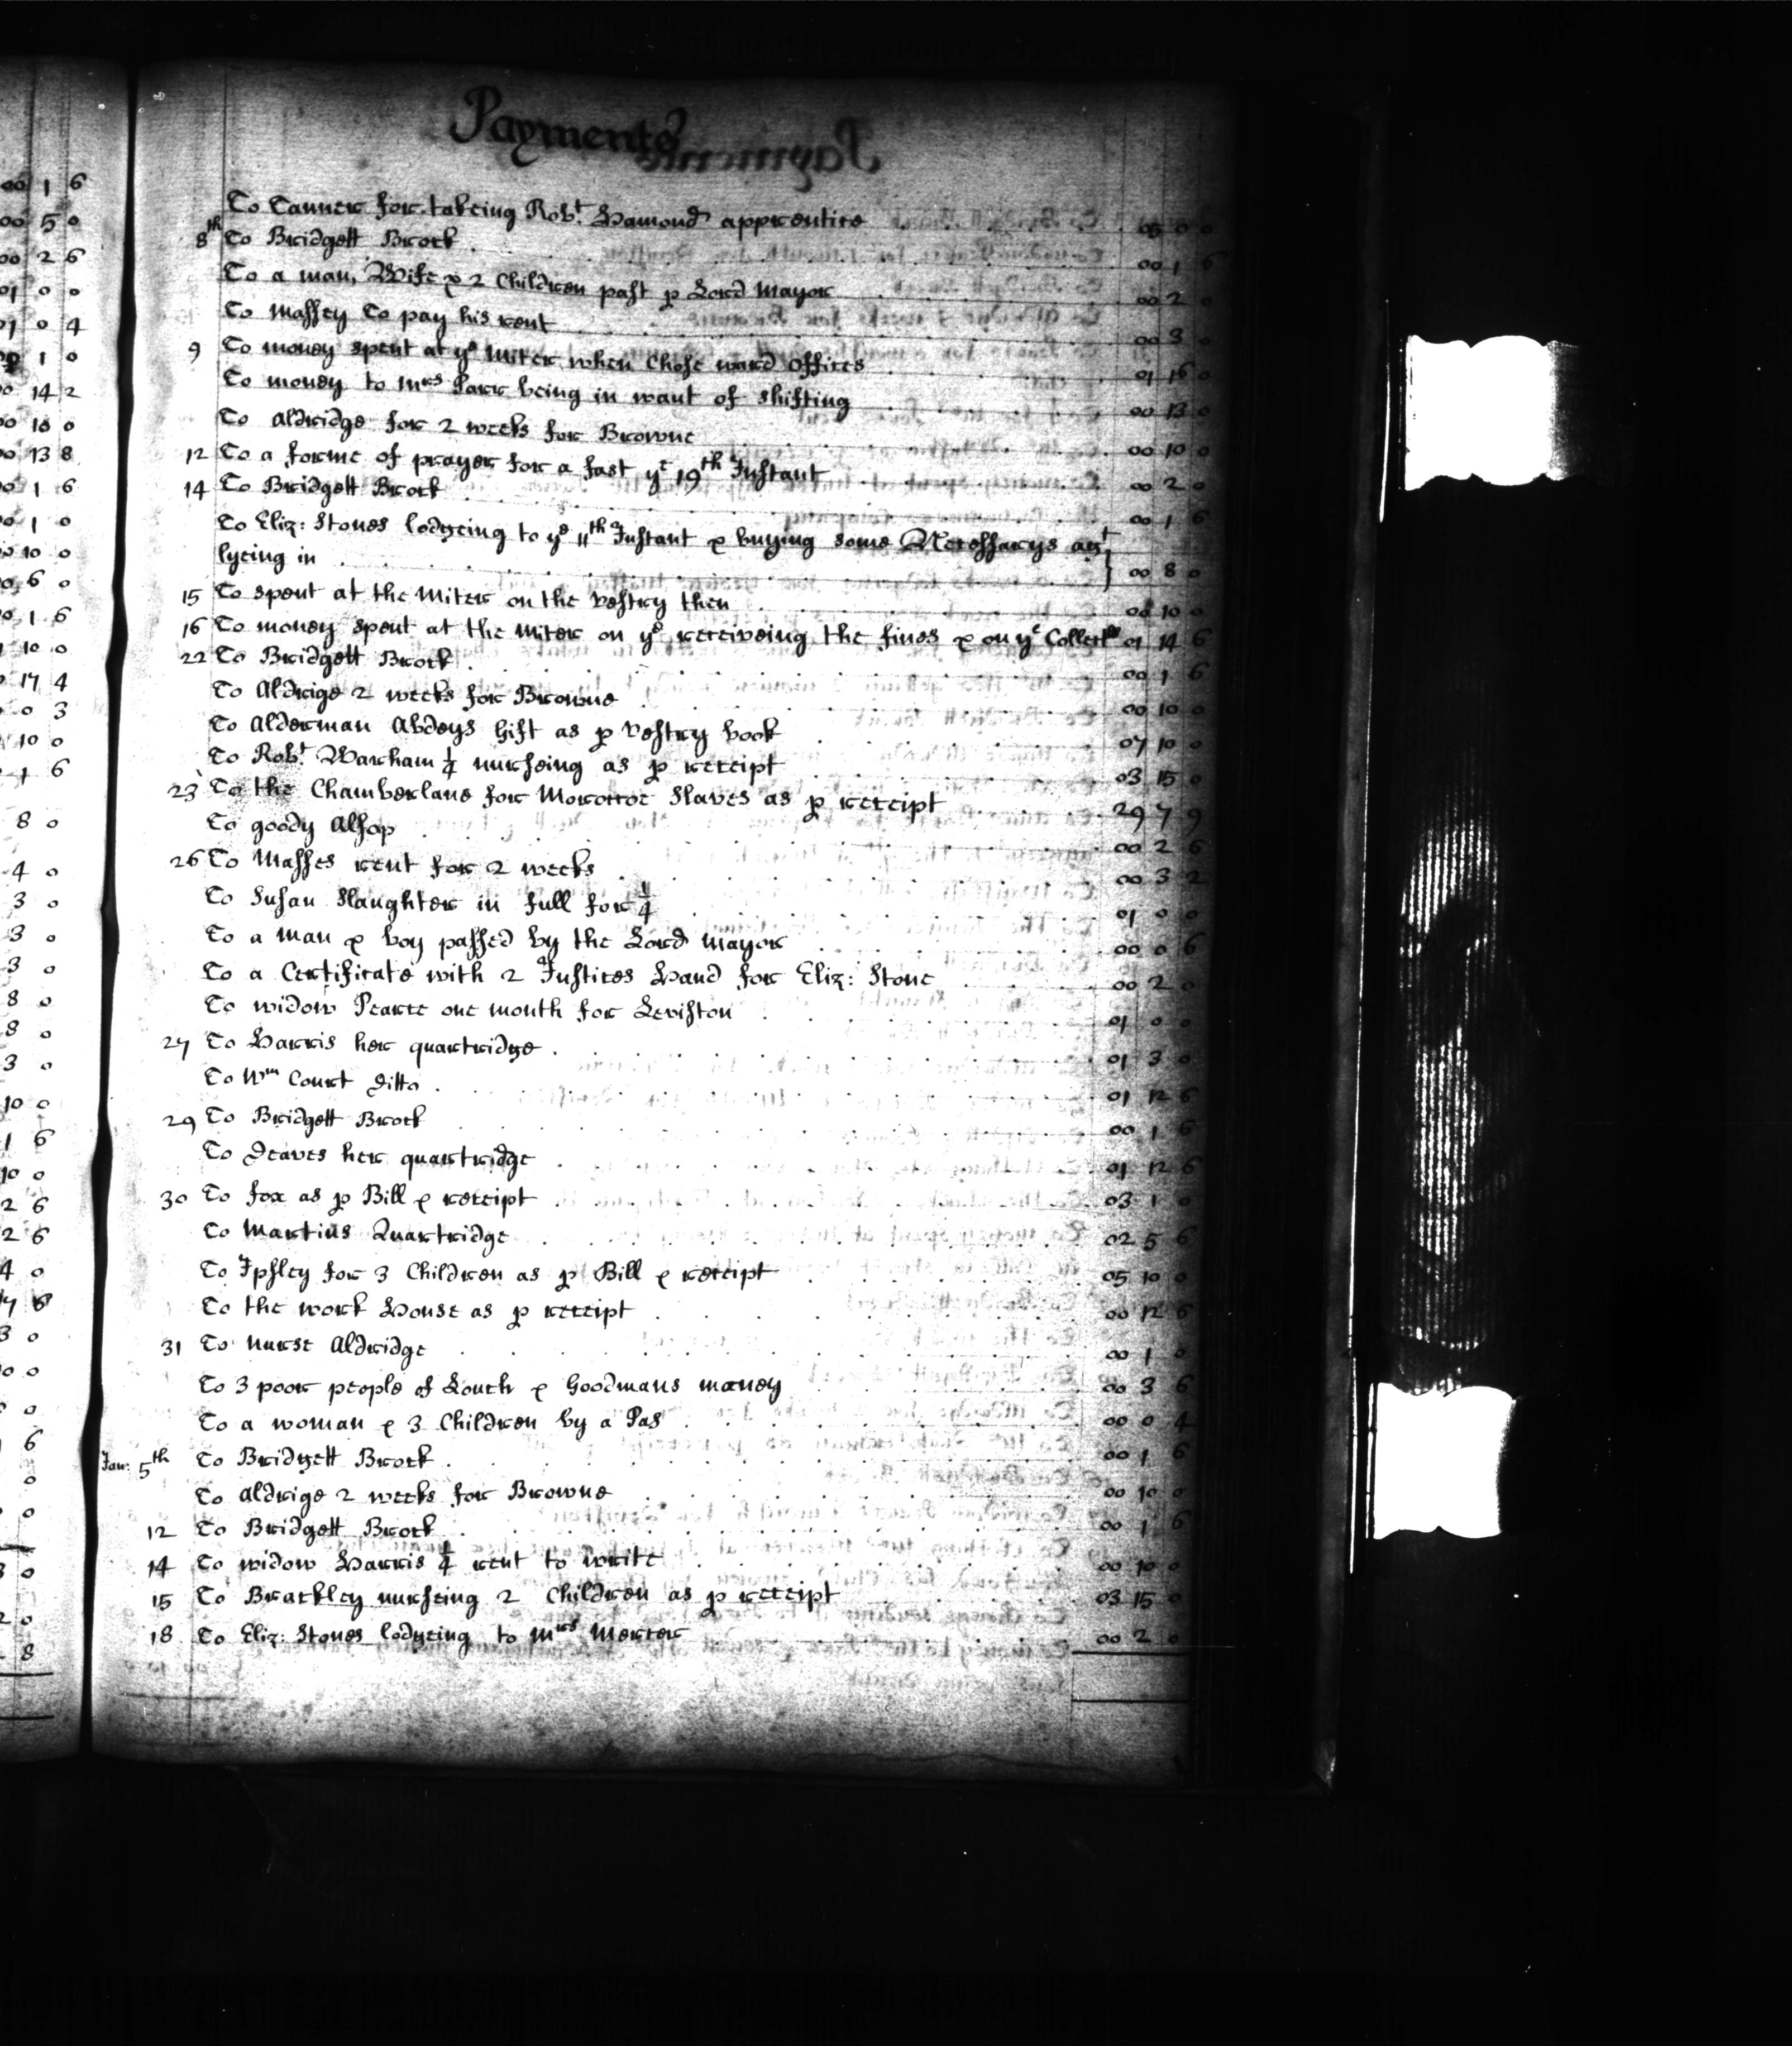 Payments
To Tanner for takeing Robt. Hamond apprentice 05 0 0
8th To Bridgett Brock 00 1 6
To a man, Wife & 2 Children past p Lord Mayor 00 2 0
To Massey To pay his rent 00 3 0
9 To money spent at ye Miter when Chose ward Offices 01 16 0
To money to Mrs Parr being in want of shifting 00 13 0
To Aldridge for 2 weeks for Browne 00 10 0
12 To a forme of prayer for a fast ye 19th Instant 00 2 0
14 To Bridgett Brock 00 1 6
To Eliz: Stones lodgeing to ye 11th Instant & buying some Necessarys agt
lyeing in 00 8 0
15 To spent at the Miter on the Vestry then 00 10 0
16 To money spent at the Miter on ye receiveing the fines & on ye Collectn 01 14 6
22 To Bridgett Brock 00 1 6
To Aldrige 2 weeks for Browne 00 10 0
To Alderman Abdeys Gift as p Vestry book 07 10 0
To Robt. Warham 1/4 nurseing as p receipt 03 15 0
23 To the Chamberlane for Morocroe Slaves as p receipt 29 7 9
To goody Alsop 00 2 6
26 To Masses rent for 2 weeks 00 3 2
To Susan Slaughter in full for 1/4 01 0 0
To a Man & boy passed by the Lord Mayor 00 0 6
To a Certificate with 2 Justices Hand for Eliz: Stone 00 2 0
To widow Pearce one month for Leviston 01 0 0
27 To Harris her quartridge 01 3 0
To Wm Court ditto 01 12 6
29 To Bridgett Brock 00 1 6
To Deaves her quartridge 01 12 6
30 To fox as p Bill & receipt 03 1 0
To Martins Quartridge 02 5 6
To Ipsley for 3 Children as p Bill & receipt 05 10 0
To the work House as p receipt 00 12 6
31 To Nurse Aldridge 00 1 0
To 3 poor people of Louth & Goodmans money 00 3 6
To a woman & 3 Children by a Pas 00 0 4
Jan: 5th To Bridgett Brock 00 1 6
To Aldrige 2 weeks for Browne 00 10 0
12 To Bridgett Brock 00 1 6
14 To widow Harris 1/4 rent to write 00 10 0
15 To Brackley nurseing 2 Children as p receipt 03 15 0
18 To Eliz: Stones lodgeing to Mrs Mercer 00 2 0